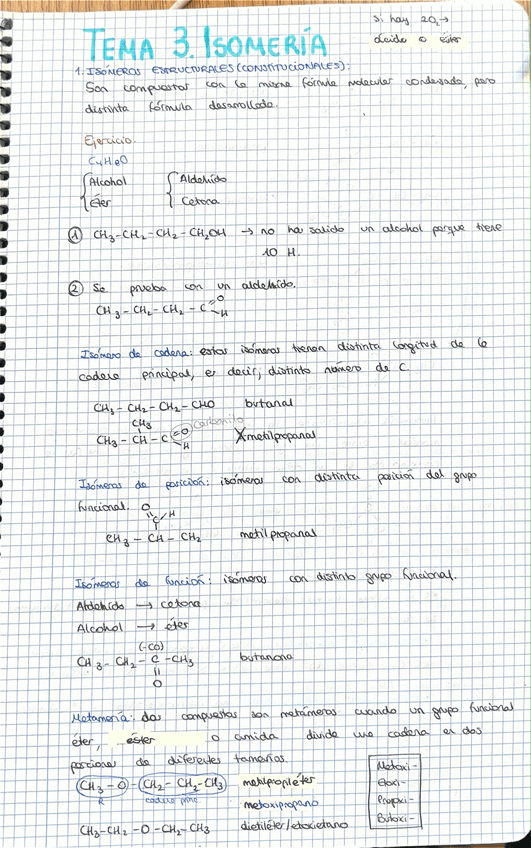 Si hay 2O₂→
ácido o éster
TEMA 3. ISOMERÍA
1. ISÓMEROS ESTRUCTURALES (CONSTITUCIONALES):
Son compuestos con la misma fórmula molecular condensada, pero
distinta fórmula desarrollada.
Ejercicio.
C₄H₈O
Alcohol Aldehído
Éter Cetona
① CH₃-CH₂-CH₂-CH₂OH → no ha salido un alcohol porque tiene
10 H.
② Se prueba con un aldehído.
CH₃-CH₂-CH₂-C=O
H
Isómero de cadena: estos isómeros tienen distinta longitud de la
cadena principal, es decir, distinto número de C.
CH₃-CH₂-CH₂-CHO butanal
CH₃ carbonilo
CH₃-CH-C=O metilpropanal
H
Isómeros de posición: isómeros con distinta posición del grupo
funcional. O
C H
CH₃-CH-CH₂ metilpropanal
Isómeros de función: isómeros con distinto grupo funcional.
Aldehído → cetona
Alcohol → éter
(-CO)
CH₃-CH₂-C-CH₃ butanona
O
Metamería: dos compuestos son metámeros cuando un grupo funcional
éter, éster o amida divide una cadena en dos
porciones de diferentes tamaños.
CH₃-O-CH₂-CH₂-CH₃ metilpropiléter
R cadena princ metoxipropano
CH₃-CH₂-O-CH₂-CH₃ dietiléter/etoxietano
Metoxi-
Etoxi-
Propoxi-
Butoxi-